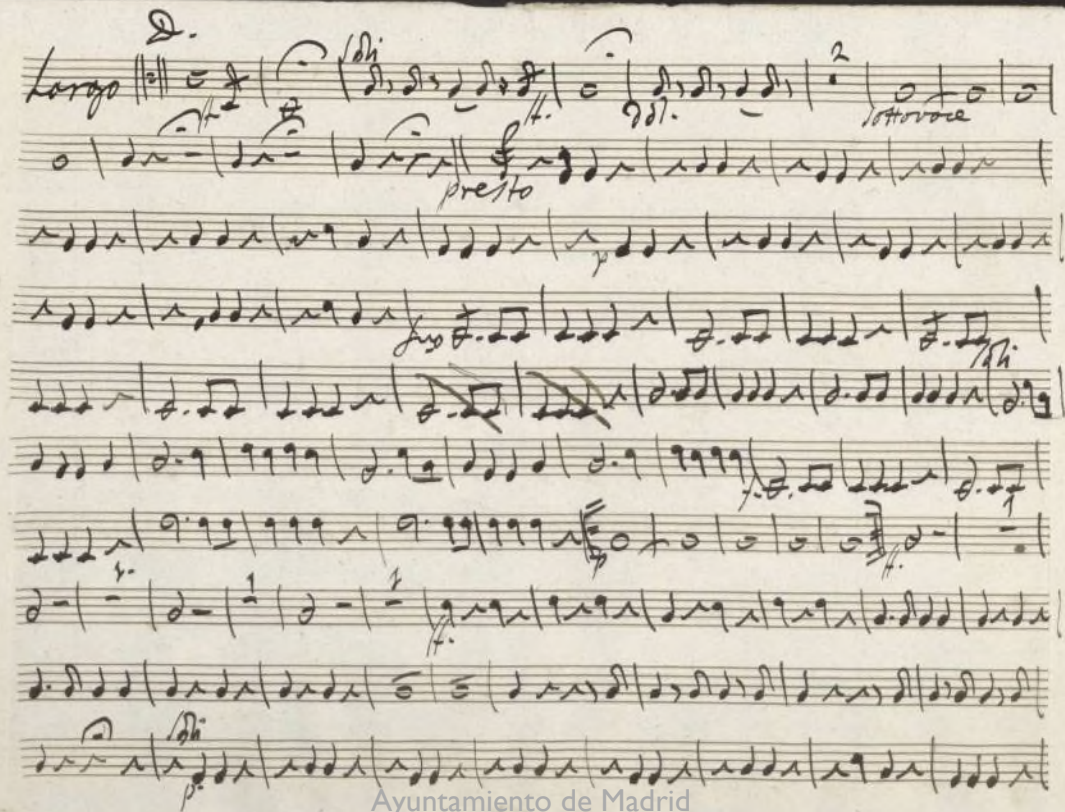 D.
Largo soli 2
ff. ff. dol. sottovoce
presto
p
soli
f.
1
p ff.
1. 1 1
ff.
soli
p.
Ayuntamiento de Madrid